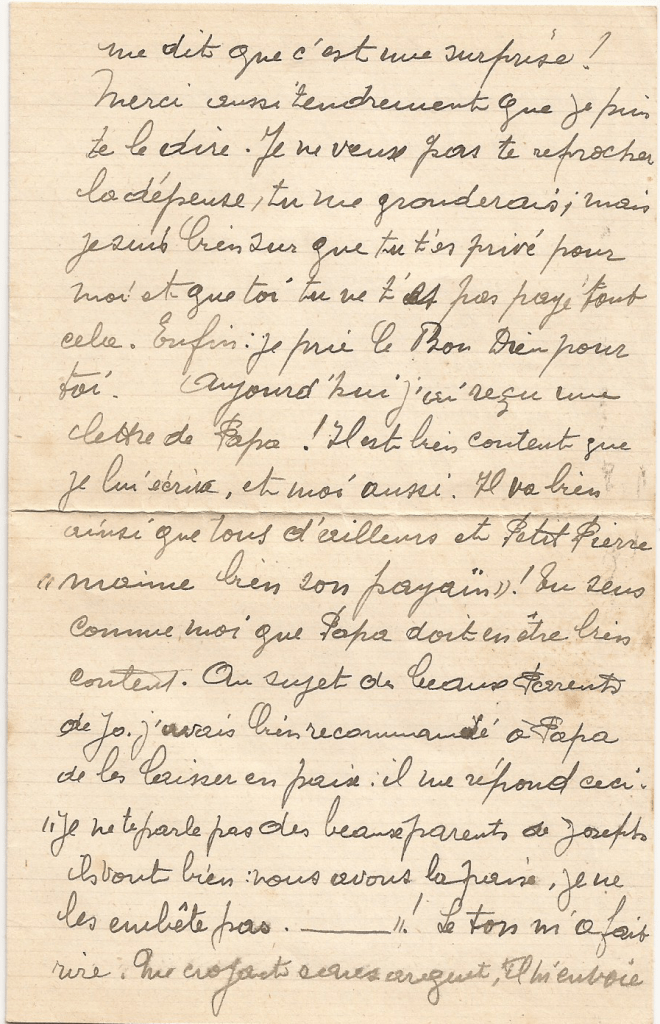 me dit que c'est une surprise !
Merci aussi tendrement que je puis
te le dire. Je ne veux pas te reprocher
la dépense, tu me gronderais ; mais
je suis bien sur que tu t'es privé pour
moi et que toi tu ne t'es pas payé tout
cela. Enfin : je prie le Bon Dieu pour
toi. Aujourd'hui j'ai reçu une
lettre de Papa ! Il est bien content que
je lui écrive, et moi aussi. Il va bien
ainsi que tous d'ailleurs et Petit Pierre
« maime bien son payaïn » ! Tu sens
comme moi que Papa doit en être bien
content. Au sujet des beaux Parents
de Jo. j'avais bien recommandé à Papa
de les laisser en paix : il me répond ceci.
« Je ne te parle pas des beaux parents de Joseph
ils vont bien : nous avons la paix, je ne
les embête pas. ——— » ! Le ton m'a fait
rire. Me croyant sans argent, Il m'envoie